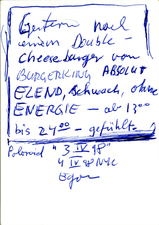 Gestern nach
einem Double-
cheeseburger von
BURGERKING ABSOLUT
ELEND, schwach, ohne
ENERGIE - ab 13 00
bis 24 00 - gefühlt.
Polaroid "3 IV 98"
4 IV 98 NYC